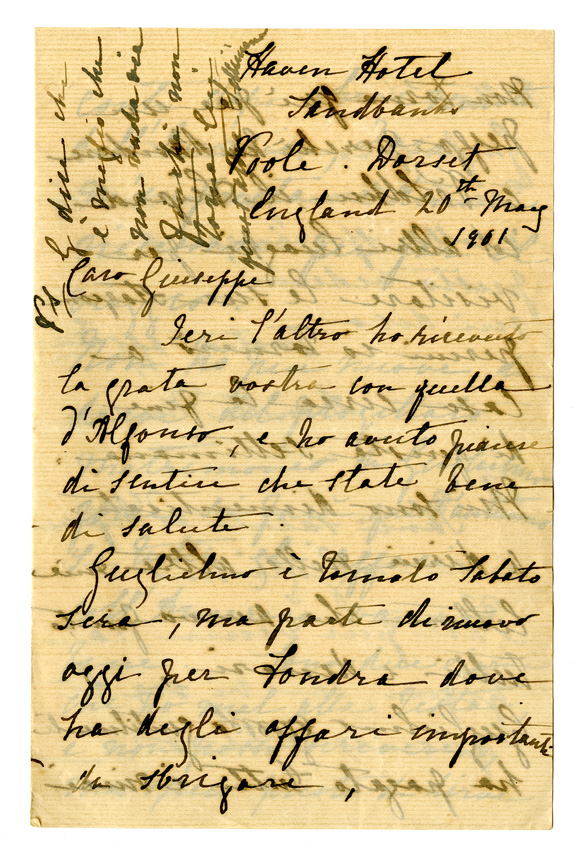 Haven Hotel
Sandbanks
Poole. Dorset
England 20th May
1901
Caro Giuseppe
Ieri l'altro ho ricevuto
la grata vostra con quella
d'Alfonso, e ho avuto piacere
di sentire che state bene
di salute.
Guglielmo è tornato Sabato
sera, ma parte di nuovo
oggi per Londra dove
ha degli affari importanti
da sbrigare,
PS
G dice che
è meglio che
non vada via
non